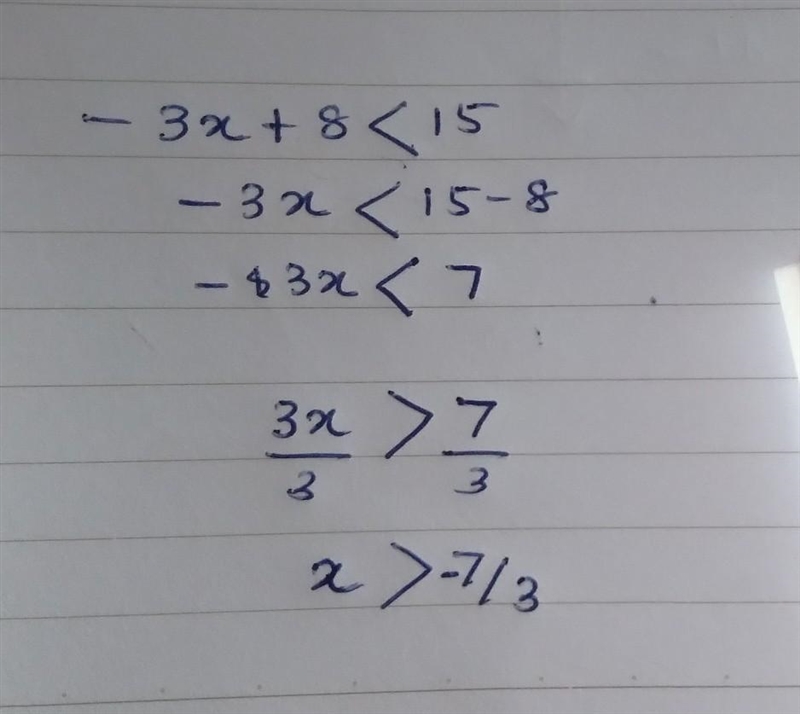 - 3x + 8 < 15
- 3x < 15 - 8
- 3x < 7
3x/3 > 7/3
x > -7/3